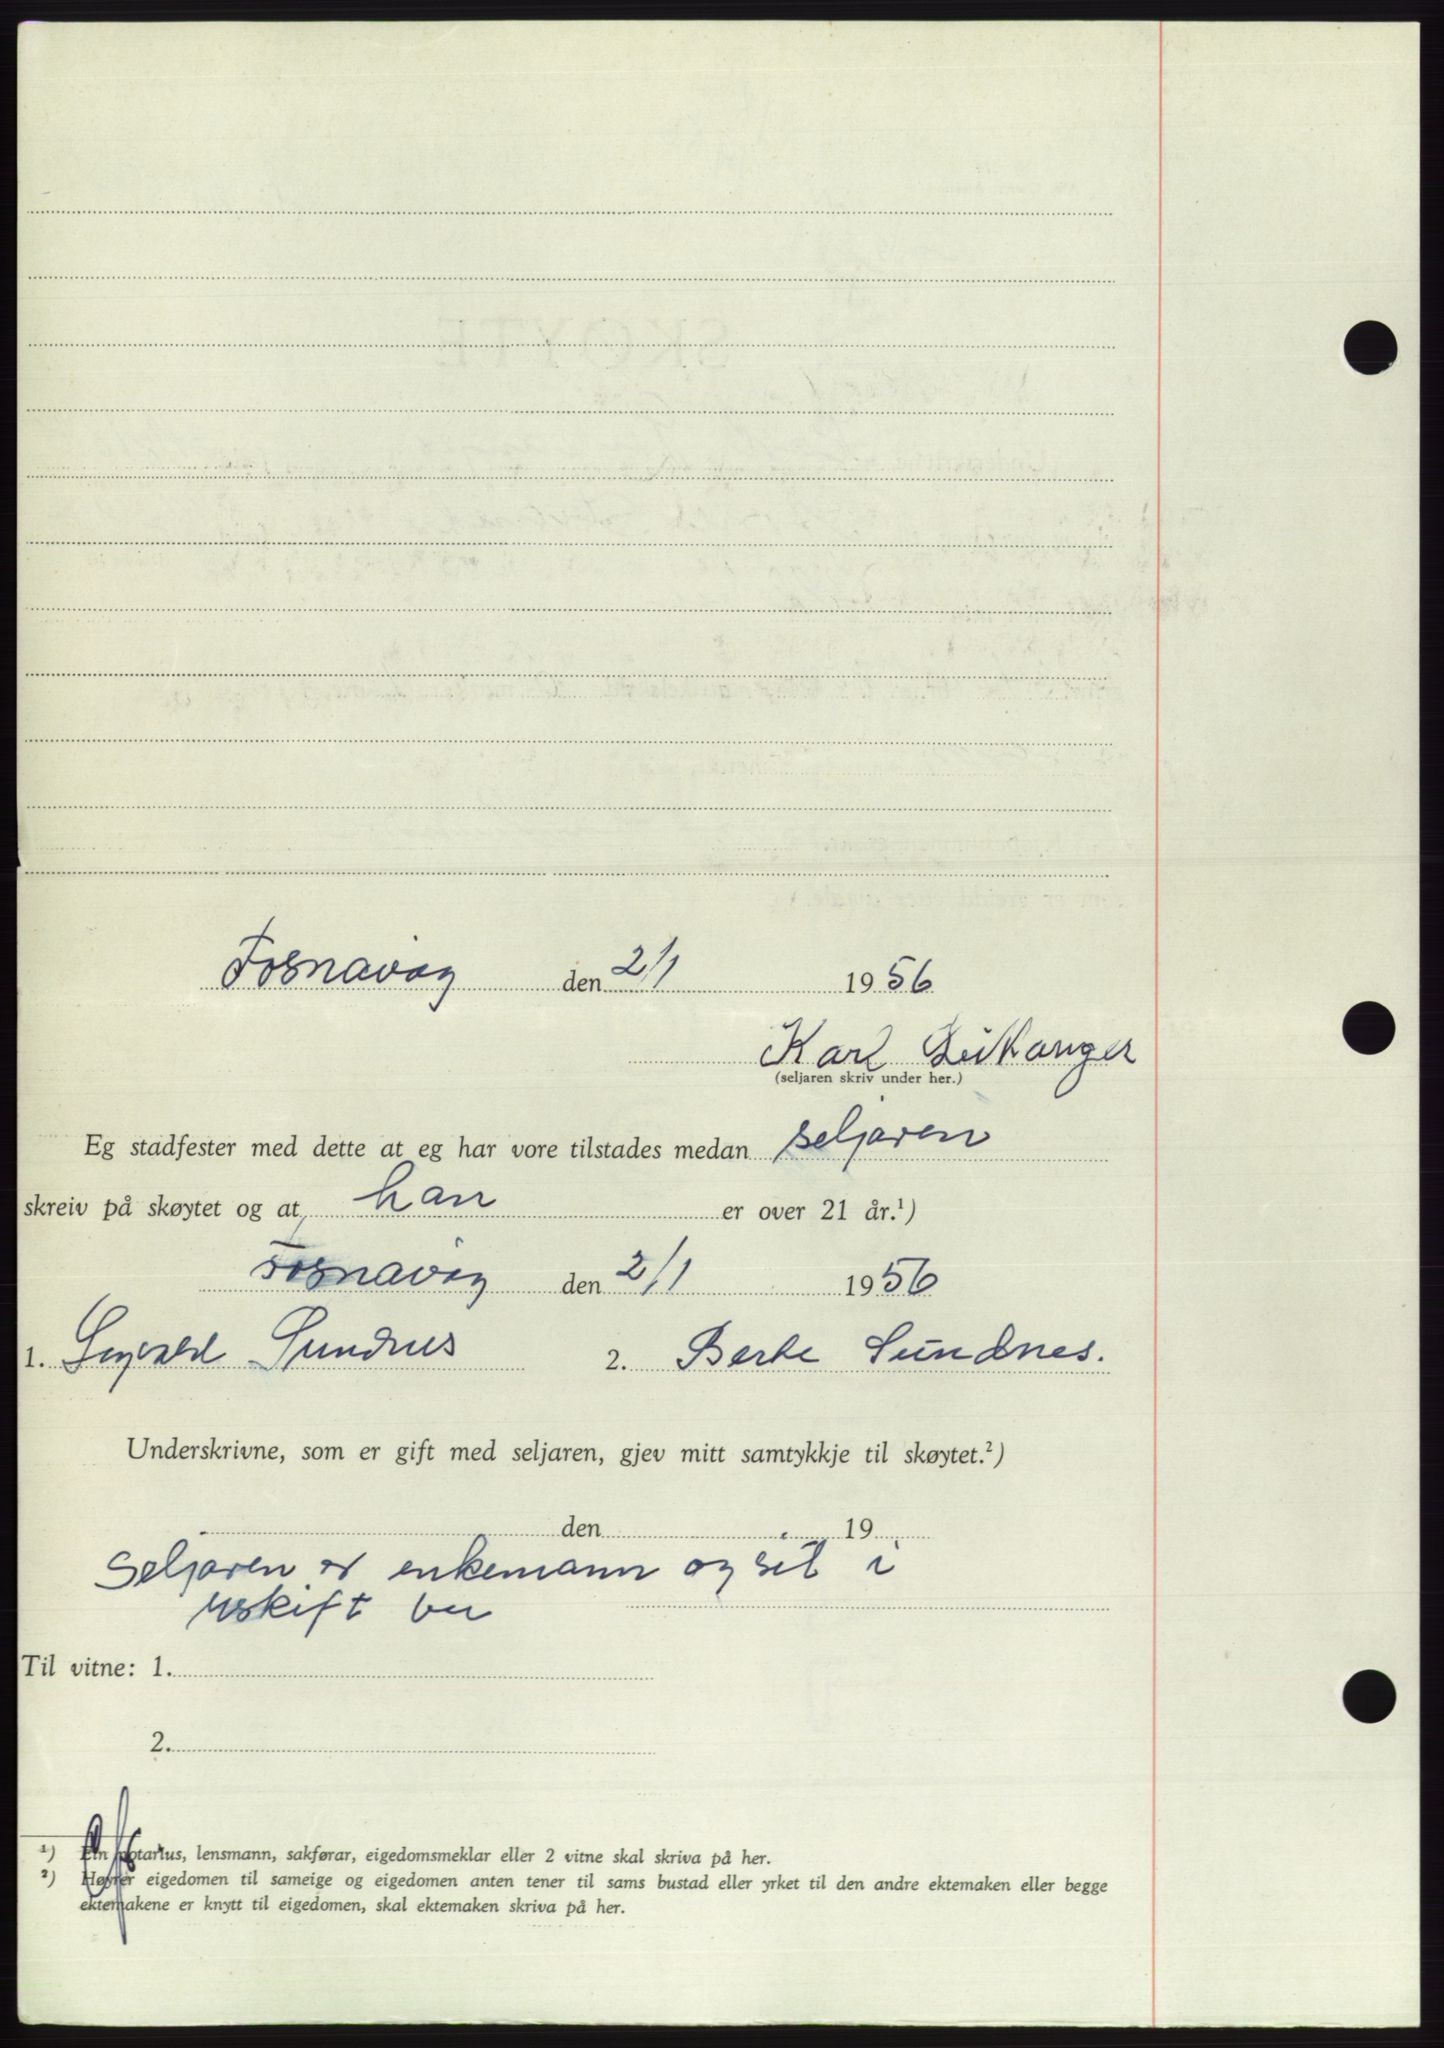 Fosnavåg den 2/1 1956
Karl Leikanger
(seljaren skriv under her.)
Eg stadfester med dette at eg har vore tilstades medan seljaren
skreiv på skøytet og at han er over 21 år.¹)
Fosnavåg den 2/1 1956
1. Sundnes 2. Berte Sundnes.
Underskrivne, som er gift med seljaren, gjev mitt samtykkje til skøytet.²)
den 19
Seljaren er enkemann og sit i
uskift bu
Til vitne: 1.
2.
¹) Ein notarius, lensmann, sakførar, eigedomsmeklar eller 2 vitne skal skriva på her.
²) Høyrer eigedomen til sameige og eigedomen anten tener til sams bustad eller yrket til den andre ektemaken eller begge
ektemakene er knytt til eigedomen, skal ektemaken skriva på her.